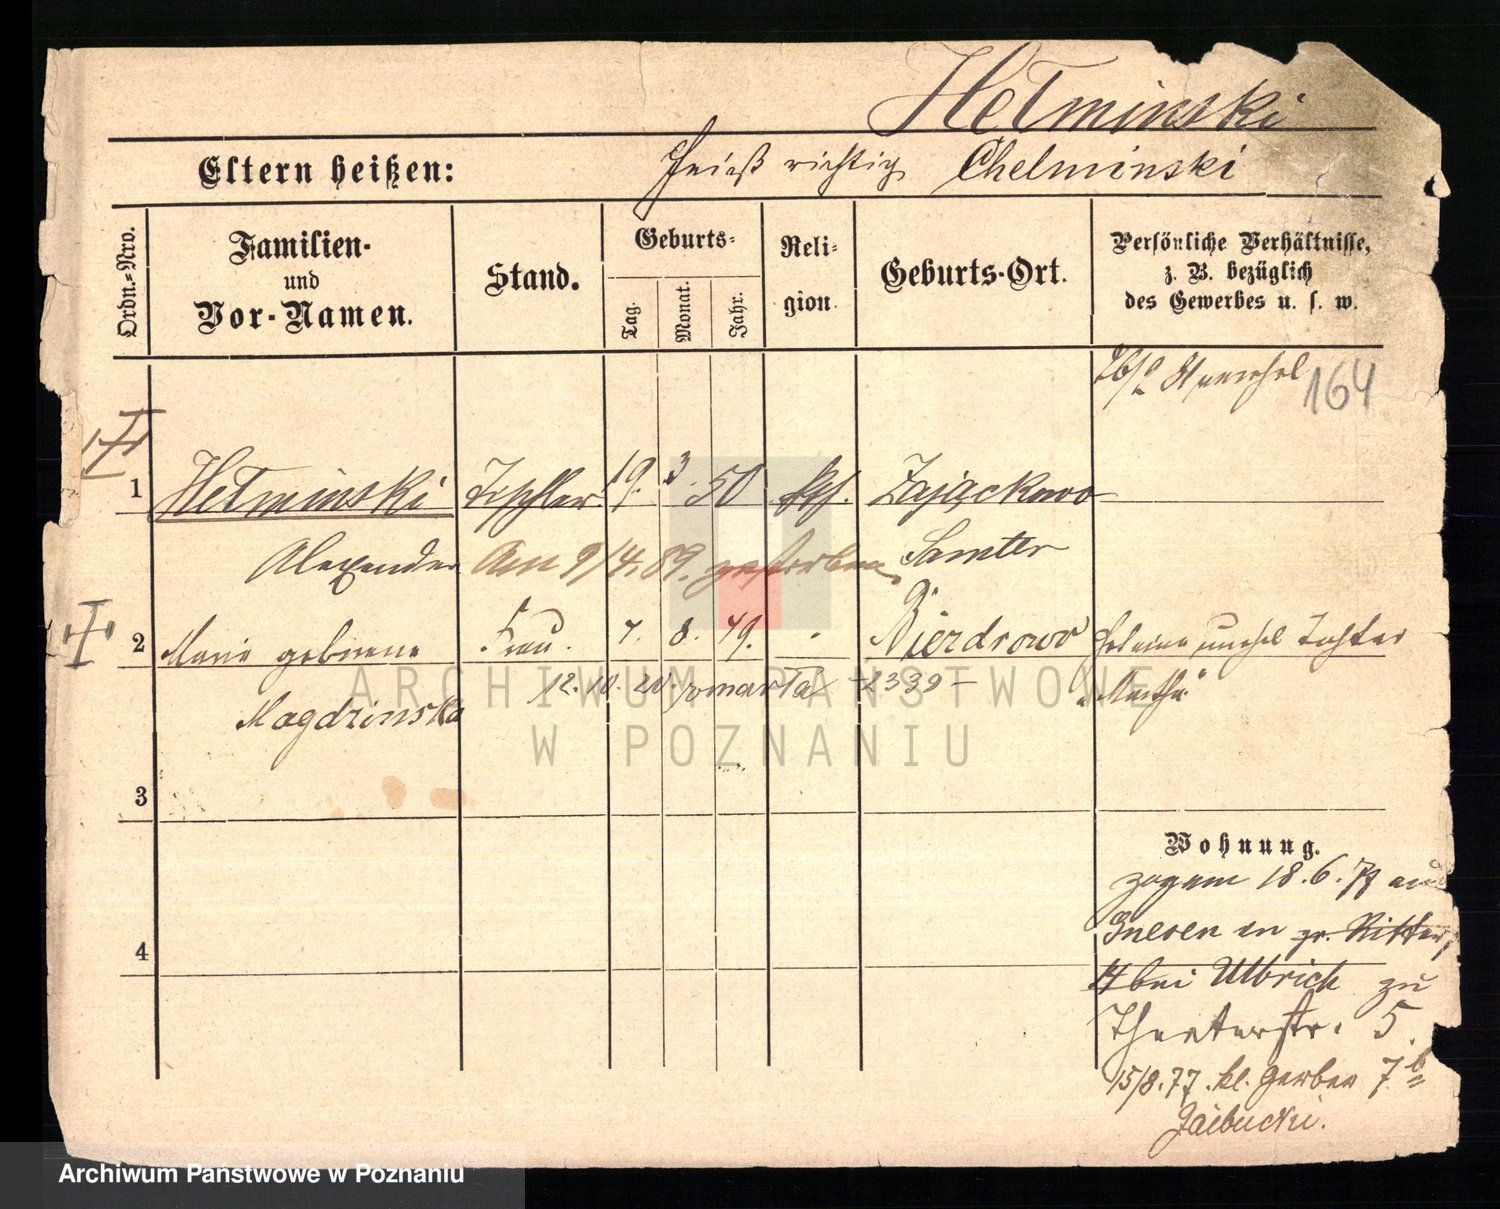 Hełminski
Eltern heißen:
heißt richtig Chelminski
Ordn.-Nro.
Familien-
und
Vor-Namen.
Stand.
Geburts-
Tag.
Monat.
Jahr.
Reli-
gion.
Geburts-Ort.
Persönliche Verhältnisse,
z. B. bezüglich
des Gewerbes u. s. w.
164
1 Hełminski Tischler 19. 3. 50 kth. Zajączkowo
Alexander Am 9/4. 89. gestorben. Samter
2 Marie geborene Frau. 7. 8. 49. Bierdrowo
12. 10. 20. zmarła 2339
Magdzinska
3
4
Wohnung.
zog am 18.6.77 aus
Gnesen in gr. Ritter
14 bei Ulbrich zu
Theaterstr. 5.
15/8.77. kl. Gerber 7
ARCHIWUM PAŃSTWOWE
W POZNANIU
Archiwum Państwowe w Poznaniu